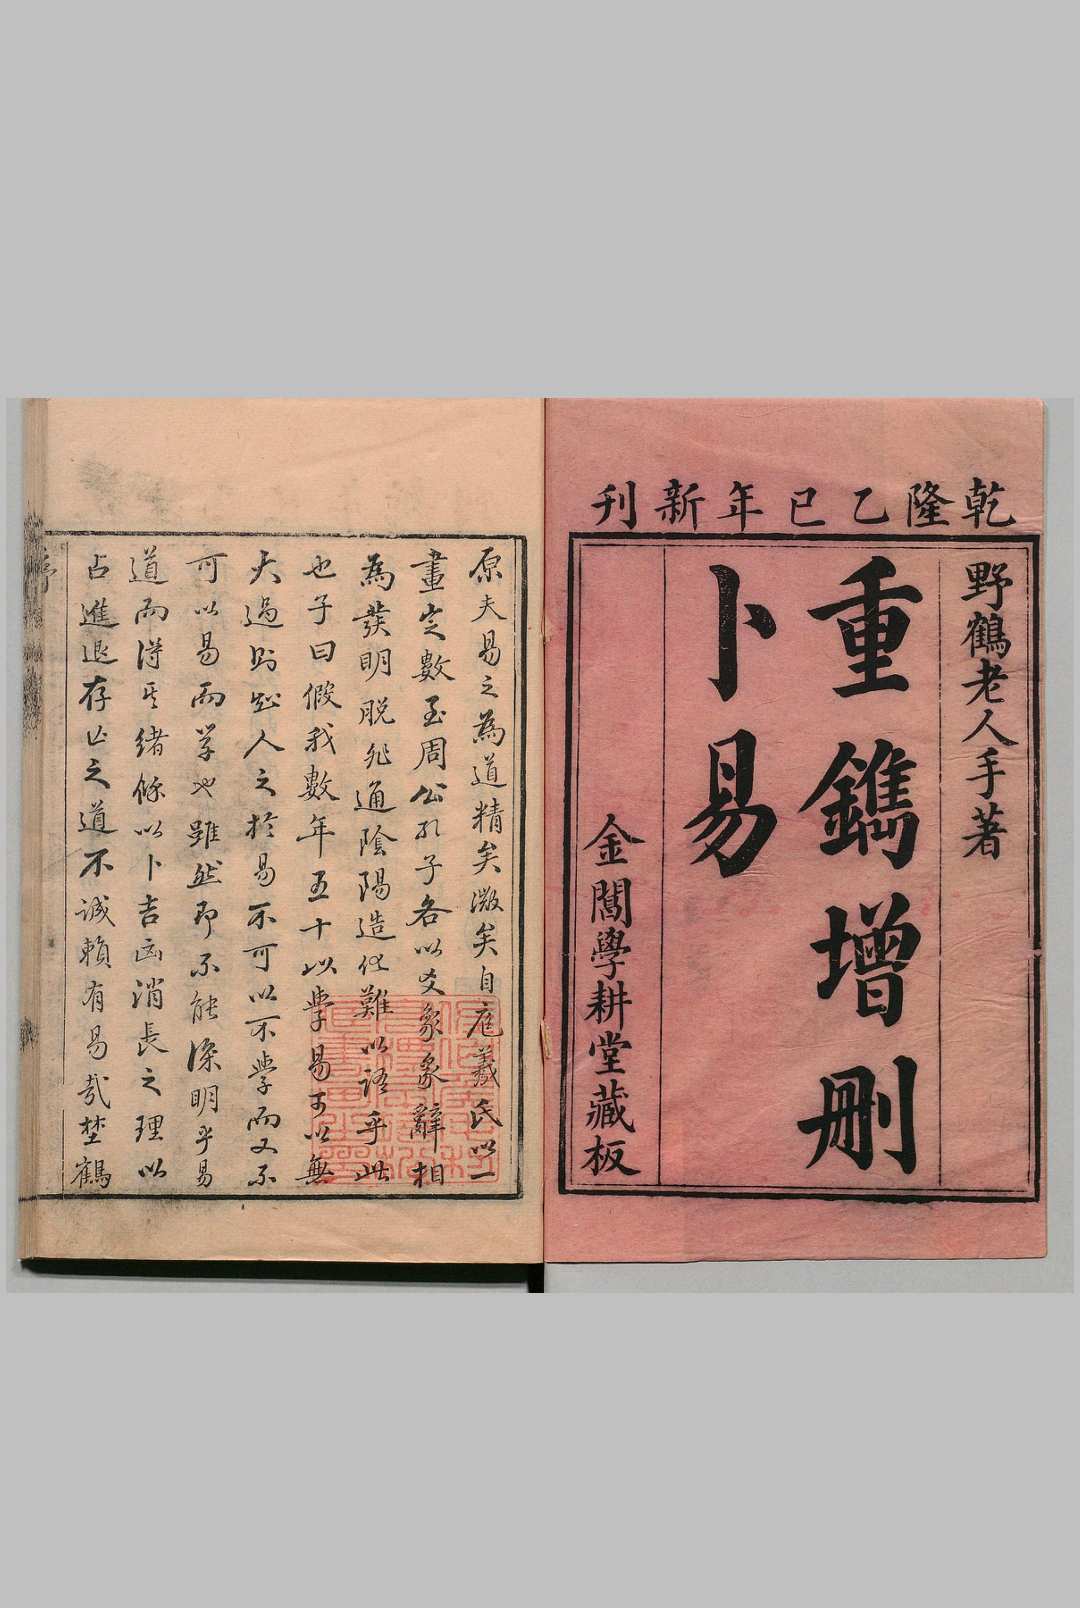 乾隆乙巳年新刊
野鶴老人手著
重鐫增刪
卜易
金閶學耕堂藏板
原夫易之為道精矣微矣自庖羲氏以一
畫定數至周公孔子各以爻象彖辭相
為發明脫非通陰陽造化難以語乎此
也子曰假我數年五十以學易可以無
大過則知人之於易不可以不學而又不
可以易而学也雖然即不能深明乎易
道而得其緒餘以卜吉凶消長之理以
占進退存亡之道不誠賴有易哉埜鶴
序